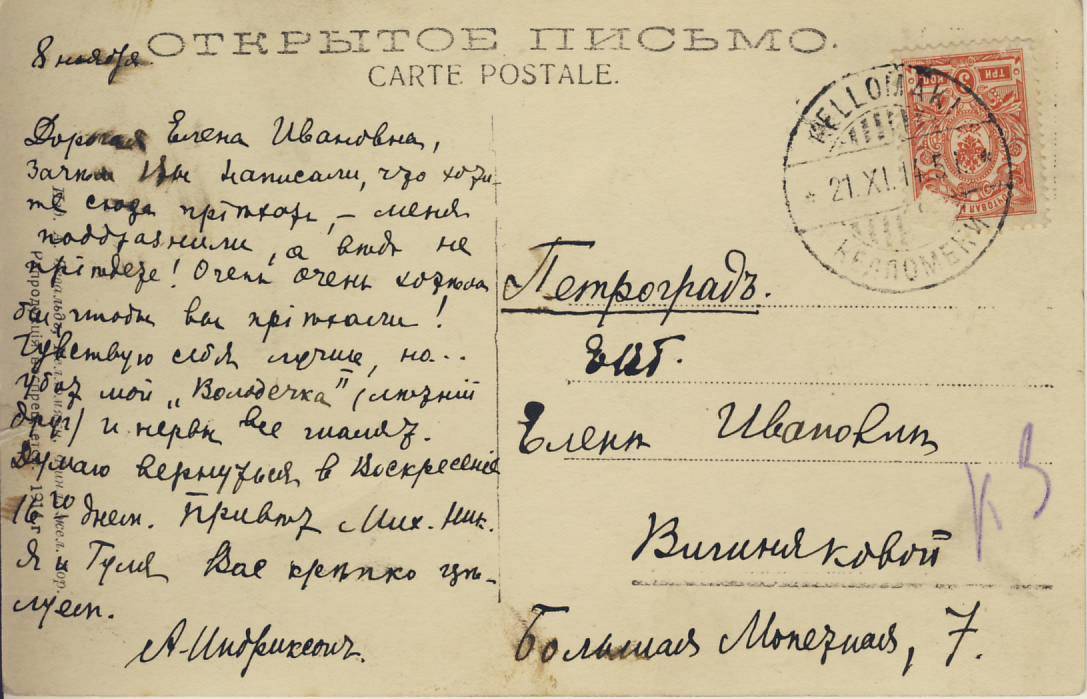 ОТКРЫТОЕ ПИСЬМО.
CARTE POSTALE.
8 ноября
Дорогая Елена Ивановна,
Зачем Вы написали, что хоти-
те сюда пріѣхать, – меня
поддразнили, а вѣдь не
пріѣдете! Очень, очень хотѣла
бы чтобы вы пріѣхали!
Чувствую себя лучше, но...
убоъ мой „Володечка"
друг) и нервы все шалятъ.
Думаю вернуться в Воскресеніе
16го днем. Привѣт Мих. Ник.
Я и Гуля Вас крѣпко цѣ-
луем.
А. Индриксонъ.
KELLOMÄKI
* 21.XI.14
КЕЛЛОМЕКИ
ТРИ
3
КОП
ПОЧТОВАЯ
Петроградъ.
ЕВБ.
Еленѣ Ивановнѣ
Вишняковой
Большая Монетная, 7.
К 3